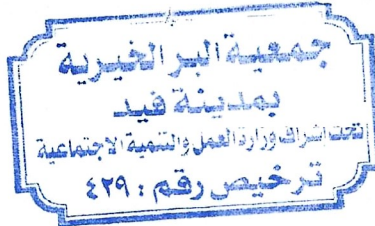 جمعية البر الخيرية
بمدينة فيد
تحت إشراف وزارة العمل والتنمية الاجتماعية
ترخيص رقم : ٤٢٩